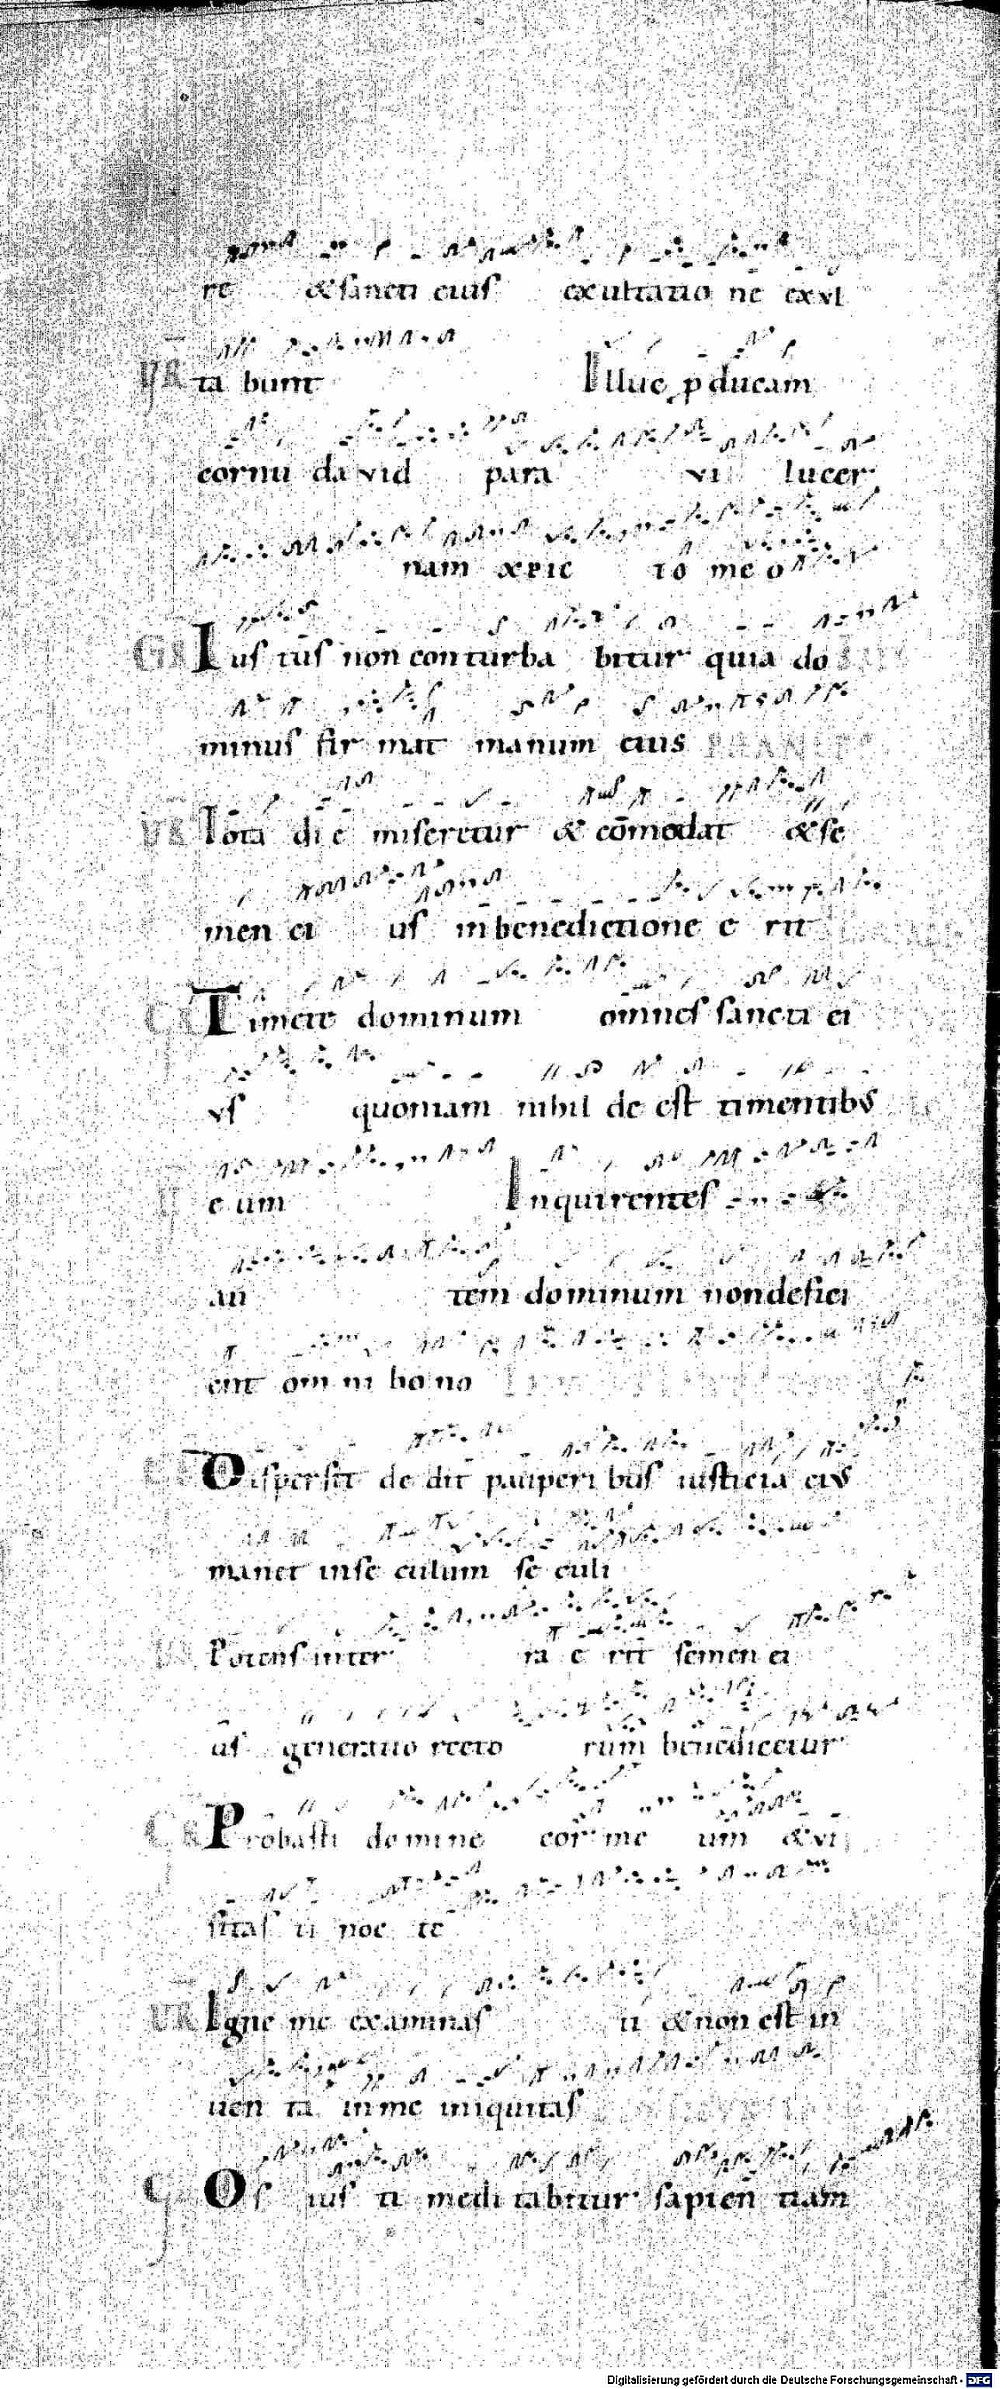 re & sancti eius exultatio nē exvl
VR ta bunt Illuc p ducam
cornu da vid para vi lucer
nam xpic to me o
GR Ius tus non conturba bitur quia do
minus fir mat manum eius
VR Iota di e miseretur & cōmodat & se
men ei us in benedictione e rit
GR Timete dominum omnes sancti ei
vs quoniam nihil de est timentibus
e um Inquirentes
au tem dominum non defici
ent om ni bo no
GR Dispersit de dit pauperi bus iusticia eius
manet in se culum se culi
VR Potens in ter ra e rit semen ei
us generatio recto rum benedicetur
GR Probasti domine cor me um & vi
sitas ti noc te
VR Igne me examinas ti & non est in
uen ta in me iniquitas
GR Os ius ti medi tabitur sapien tiam
Digitalisierung gefördert durch die Deutsche Forschungsgemeinschaft - DFG